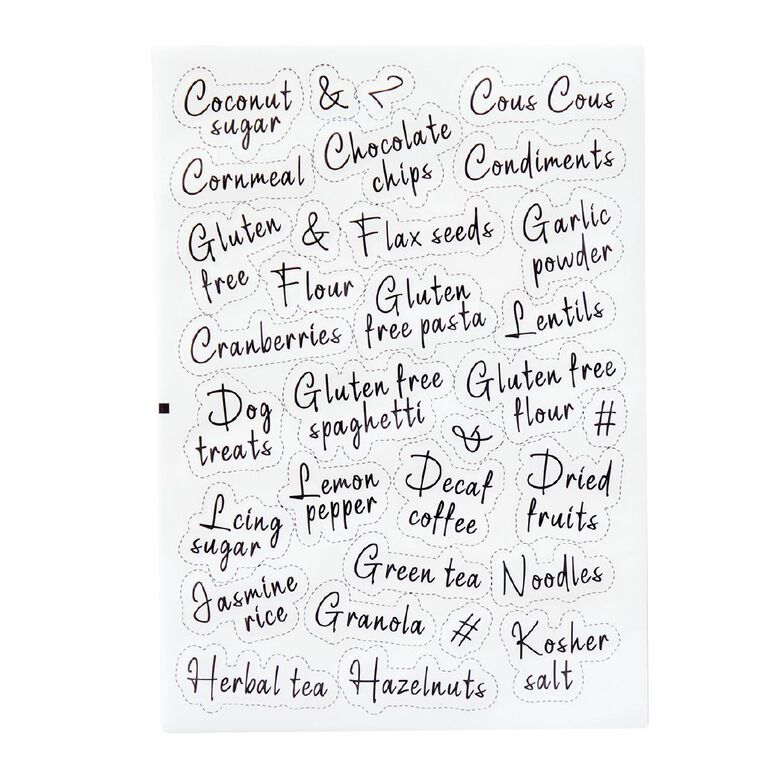 Coconut
sugar
&
Cous Cous
Cornmeal
Chocolate
chips
Condiments
Gluten
free
&
Flax seeds
Garlic
powder
Flour
Gluten
free pasta
Lentils
Cranberries
Dog
treats
Gluten free
spaghetti
Gluten free
flour
#
&
Lemon
pepper
Decaf
coffee
Dried
fruits
Icing
sugar
Green tea
Noodles
Jasmine
rice
Granola
#
Kosher
salt
Herbal tea
Hazelnuts